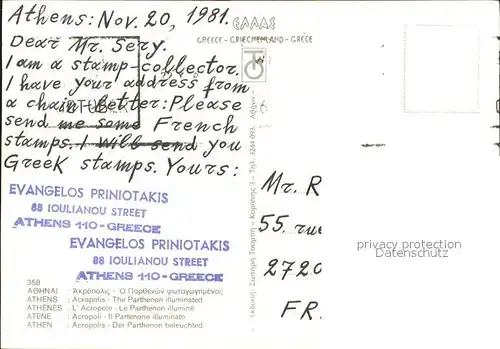 Athens: Nov. 20, 1981.
Dear Mr. Sery.
I am a stamp-collector.
I have your address from
a chain-letter: Please
send me some French
stamps. I will send you
Greek stamps. Yours:
EVANGELOS PRINIOTAKIS
88 IOULIANOU STREET
ATHENS 110-GREECE
EVANGELOS PRINIOTAKIS
88 IOULIANOU STREET
ATHENS 110-GREECE
358
ΑΘΗΝΑΙ : Ἀκρόπολις - Ὁ Παρθενών φωταγωγημένος
ATHENS : Acropolis - The Parthenon illuminated
ATHÈNES : L' Acropole - Le Parthénon illuminé
ATENE : Acropoli - Il Partenone illuminato
ATHEN : Akropolis - Der Parthenon beleuchtet
ΕΛΛΑΣ
GREECE - GRIECHENLAND - GRÈCE
Mr. R
55. rue
2720
FR.
privacy protection
oldthing.de